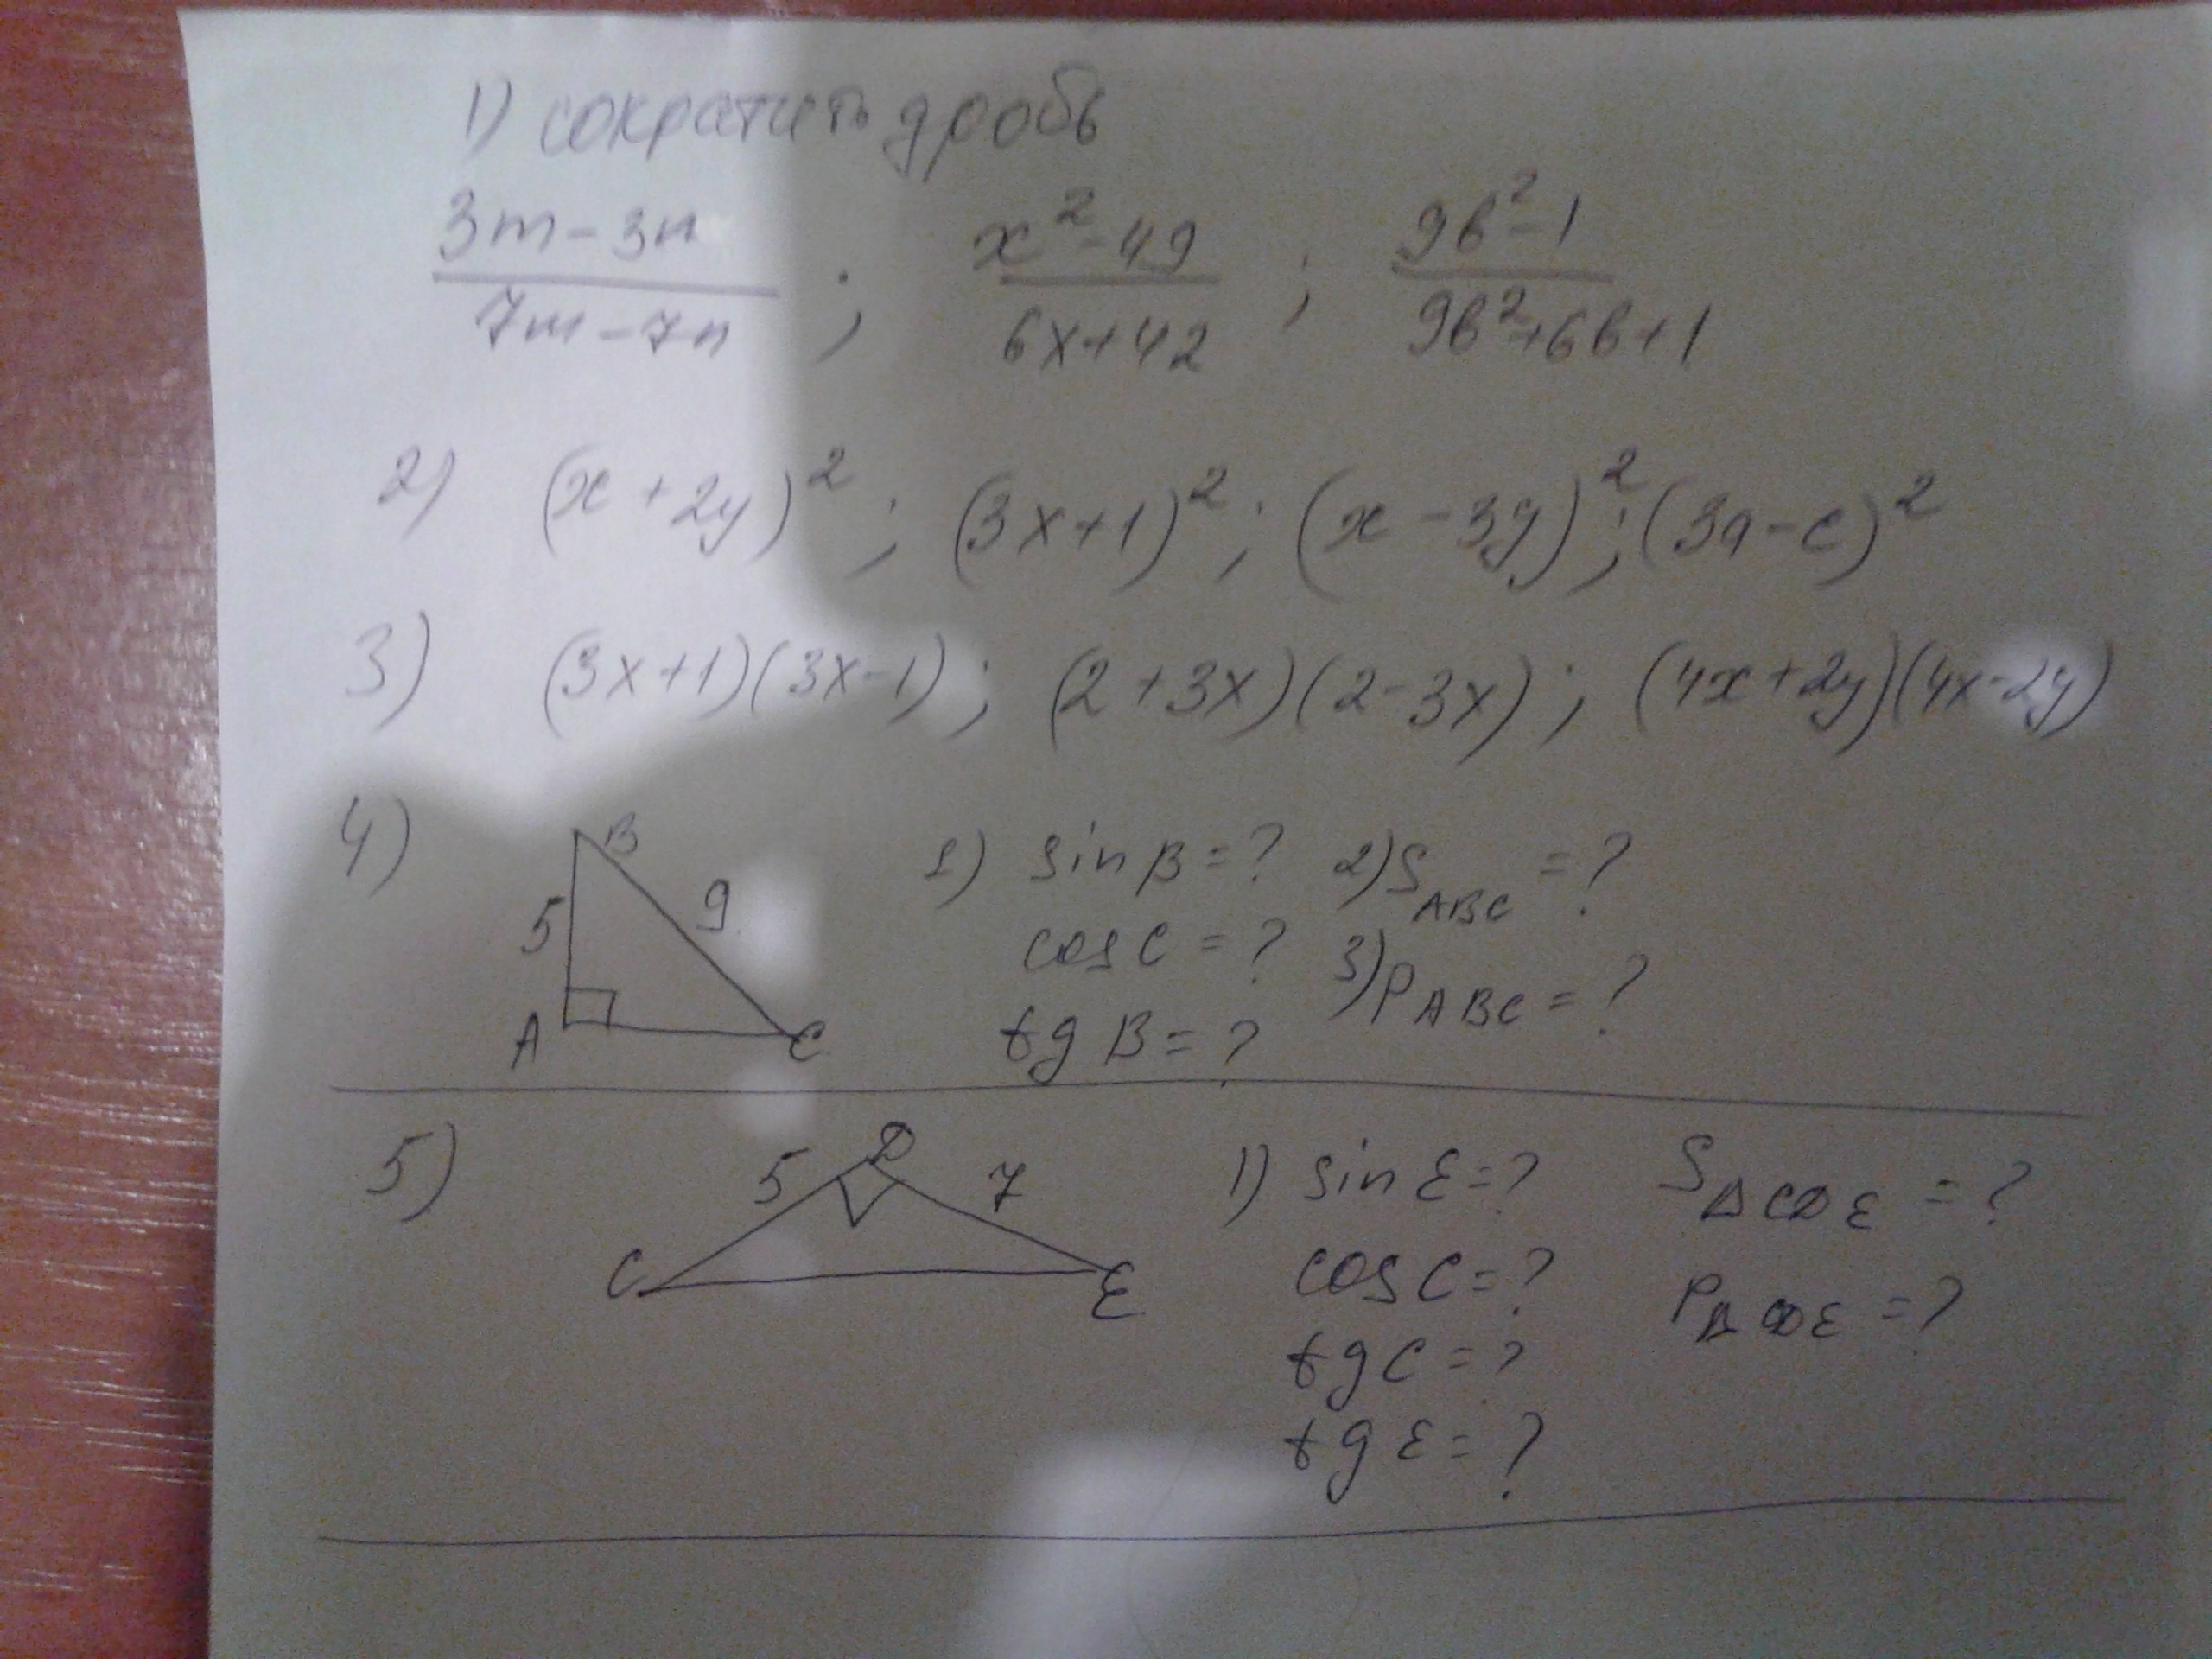 1) сократить дробь
3m-3n / 7m-7n ; x²-49 / 6x+42 ; 9b²-1 / 9b²+6b+1
2) (x+2y)² ; (3x+1)² ; (x-3y)² ; (3a-c)²
3) (3x+1)(3x-1) ; (2+3x)(2-3x) ; (4x+2y)(4x-2y)
4) B 5 9 A C
1) sin B = ? 2) S ABC = ?
cos C = ? 3) P ABC = ?
tg B = ?
5) 5 D 7 C E
1) sin E = ? S ΔCDE = ?
cos C = ? P ΔCDE = ?
tg C = ?
tg E = ?